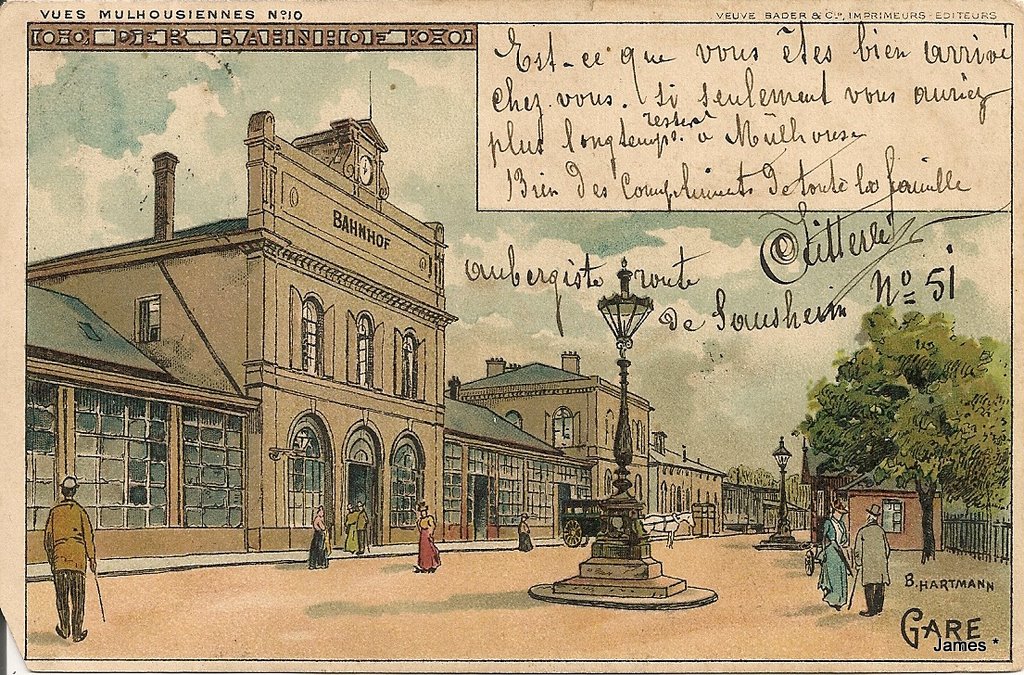 VUES MULHOUSIENNES Nº10
VEUVE BADER & Cie, IMPRIMEURS-EDITEURS
DER BAHNHOF
Est-ce que vous êtes bien arrivé
chez vous. si seulement vous auriez
plus longtemps rester à Mülhouse
Bien des Compliments de toute la famille
aubergiste route
de Sausheim Nº 51
BAHNHOF
B. HARTMANN
GARE.
James *